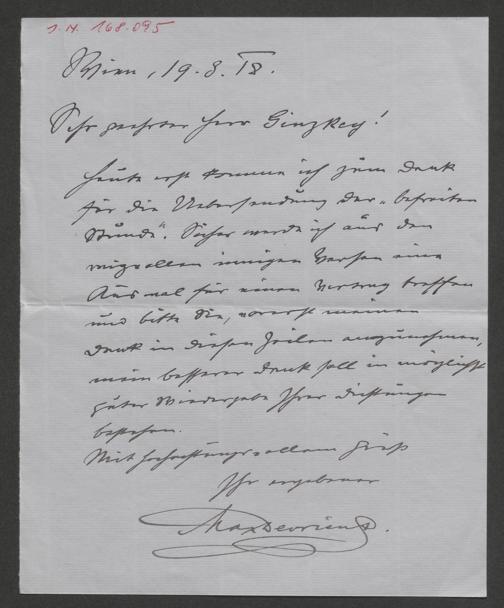 J.N. 168.095
Wien, 19. 3. 18.
Sehr geehrter Herr Ginzkey!
Heute erst komme ich zum Dank
für die Uebersendung der „befreiten
Stunde". Sicher werde ich aus den
innigen Versen eine
Auswahl für einen Vortrag treffen
und bitte Sie, vorerst meinen
Dank in diesen Zeilen anzunehmen,
mein besserer Dank soll in möglichst
guter Wiedergabe Ihrer Dichtungen
bestehen.
Mit hochachtungsvollem Gruß
Ihr ergebener
Max Devrient.